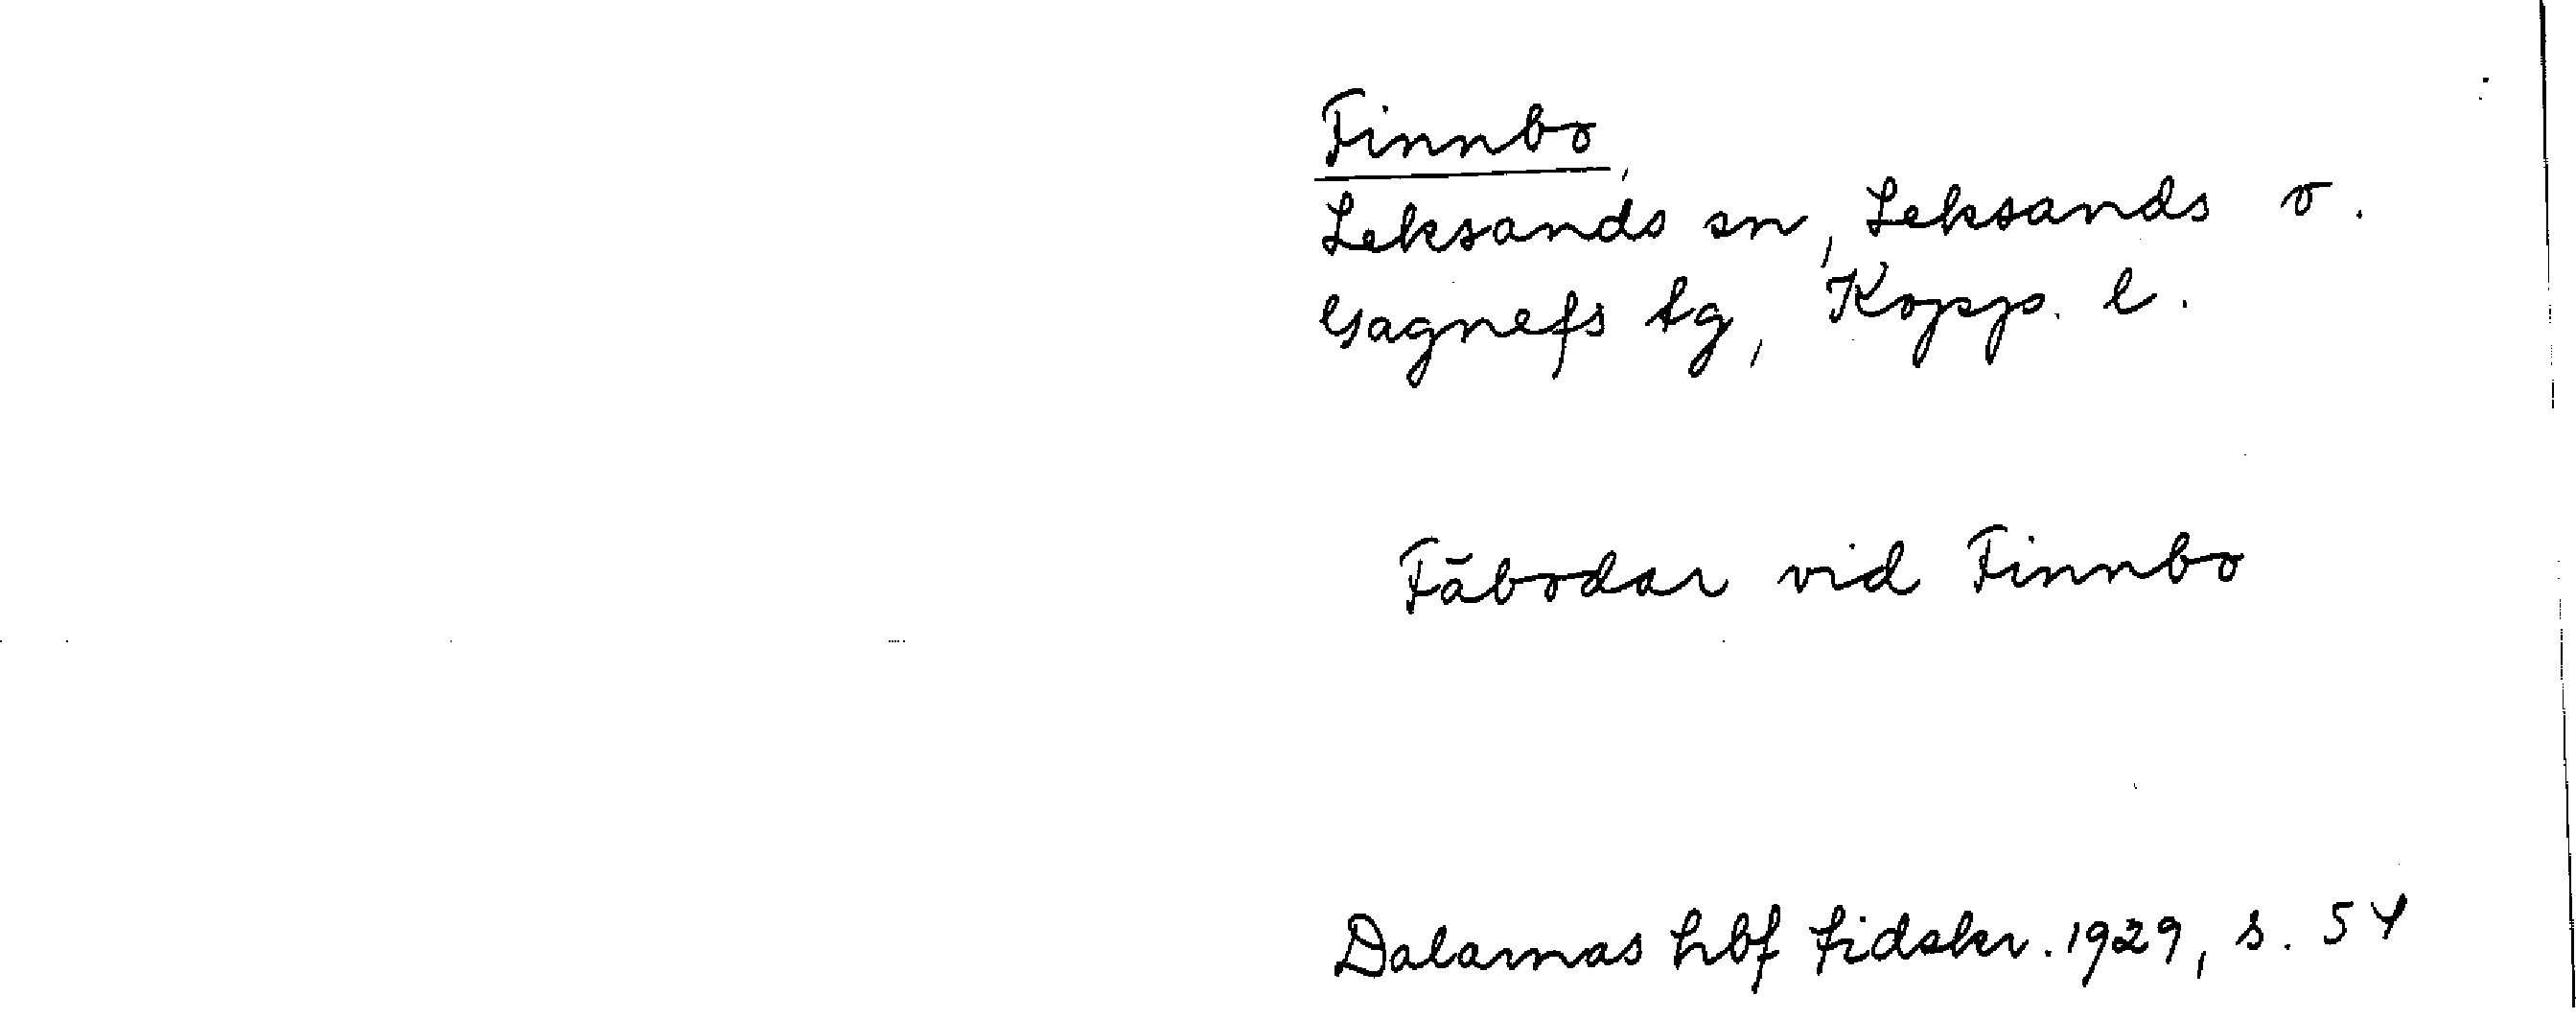 Finnbo,
Leksands sn, Leksands o.
Gagnefs tg, Kopp. l.
Fäbodar vid Finnbo
Dalarnas hbf tidskr. 1929, s. 54